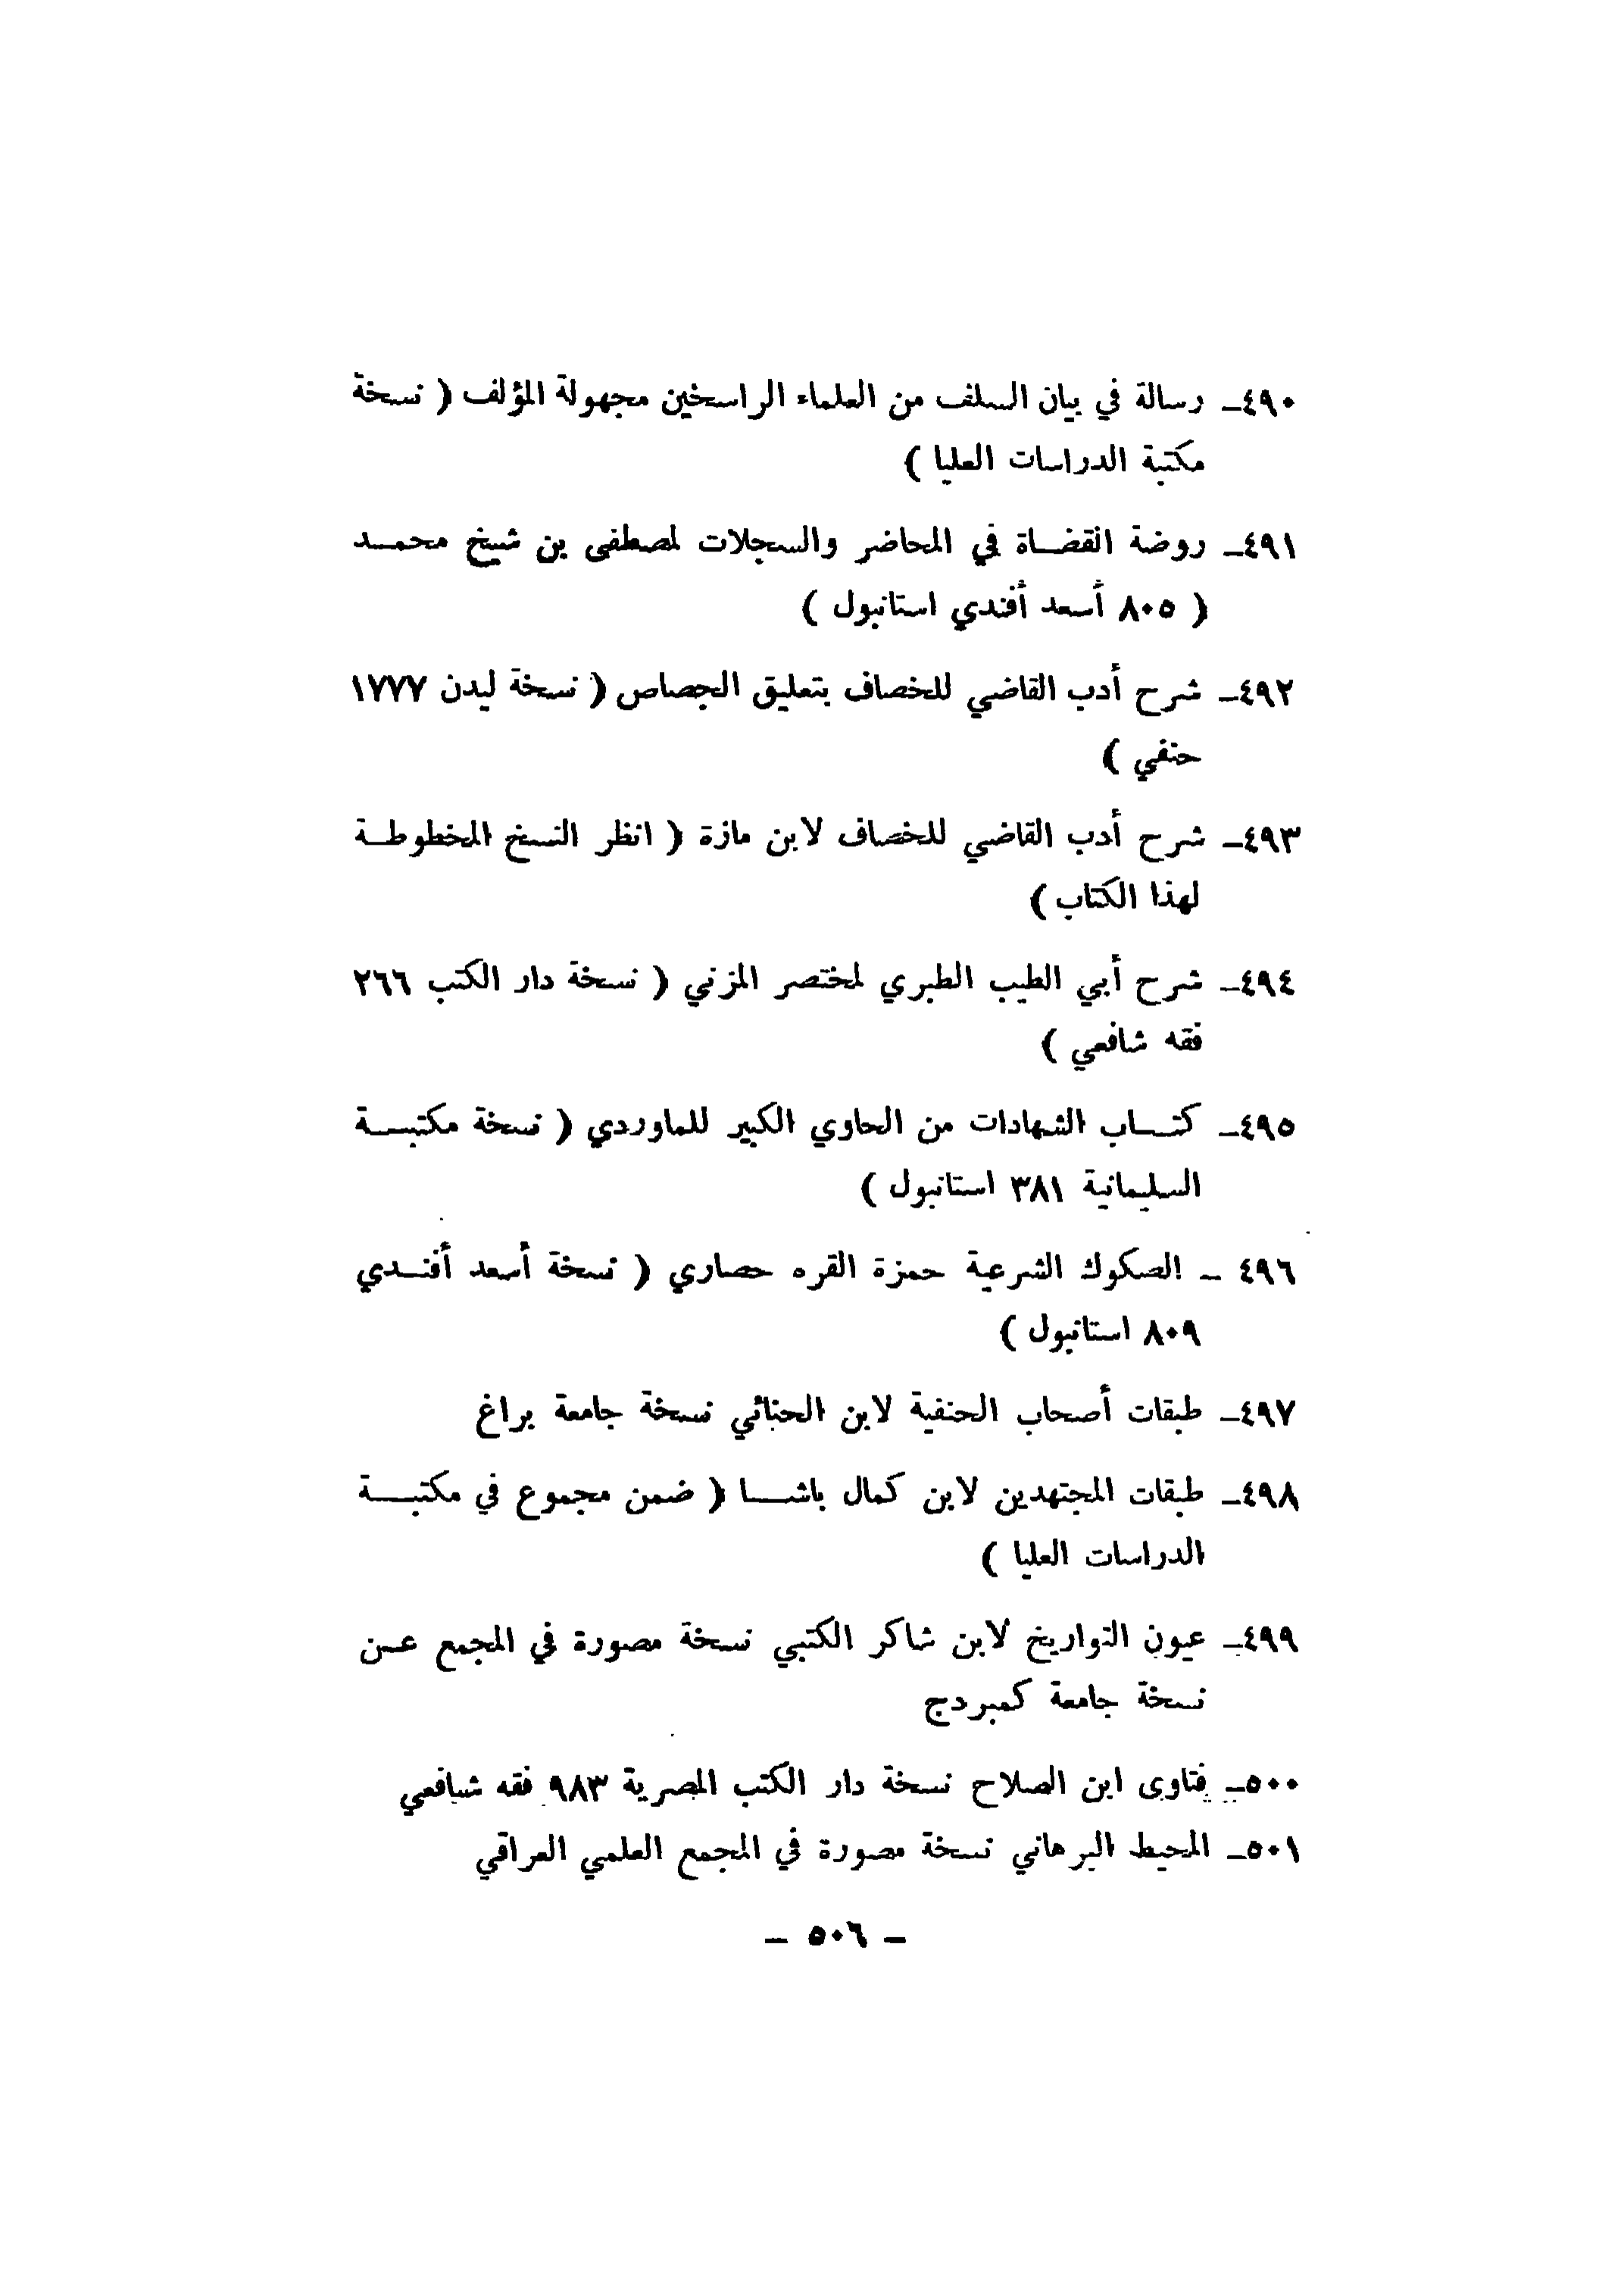 ٤٩٠ـ رسالة في بيان السلف من العلماء الراسخين مجهولة المؤلف ( نسخة
مكتبة الدراسات العليا )
٤٩١ـ روضة القضاة في المحاضر والسجلات لمصطفى بن شيخ محمد
( ٨٠٥ أسعد أفندي استانبول )
٤٩٢ـ شرح أدب القاضي للخصاف بتعليق الجصاص ( نسخة ليدن ١٧٧٧
حنفي )
٤٩٣ـ شرح أدب القاضي للخصاف لابن مازة ( انظر النسخ المخطوطة
لهذا الكتاب )
٤٩٤ـ شرح أبي الطيب الطبري لمختصر المزني ( نسخة دار الكتب ٢٦٦
فقه شافعي )
٤٩٥ـ كتاب الشهادات من الحاوي الكبير للماوردي ( نسخة مكتبة
السليمانية ٣٨١ استانبول )
٤٩٦ ـ الصكوك الشرعية حمزة القره حصاري ( نسخة أسعد أفندي
٨٠٩ استانبول )
٤٩٧ـ طبقات أصحاب الحنفية لابن الحنائي نسخة جامعة براغ
٤٩٨ـ طبقات المجتهدين لابن كمال باشا ( ضمن مجموع في مكتبة
الدراسات العليا )
٤٩٩ـ عيون التواريخ لابن شاكر الكتبي نسخة مصورة في المجمع عن
نسخة جامعة كمبردج
٥٠٠ـ فتاوى ابن الصلاح نسخة دار الكتب المصرية ٩٨٣ فقه شافعي
٥٠١ـ المحيط البرهاني نسخة مصورة في المجمع العلمي العراقي
ـ ٥٠٦ ـ